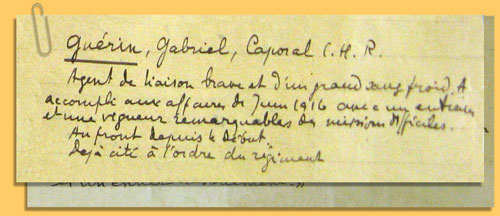 Guérin, Gabriel, Caporal C.H.R.
Agent de liaison brave et d'un grand sang froid. A
accompli aux affaires de Juin 1916 avec un entrain
et une vigueur remarquables des missions difficiles.
Au front depuis le début.
Déjà cité à l'ordre du régiment